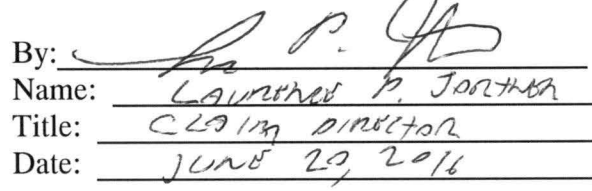 By:
Name: LAURENCE P. JORTNER
Title: CLAIM DIRECTOR
Date: JUNE 20, 2016